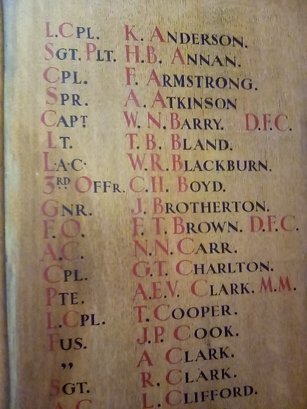 L.CPL. K. ANDERSON.
SGT. PLT. H.B. ANNAN.
CPL. F. ARMSTRONG.
SPR. A. ATKINSON
CAPT W. N. BARRY. D.F.C.
LT. T. B. BLAND.
L.A.C. W. R. BLACKBURN.
3RD OFFR. C. H. BOYD.
GNR. J. BROTHERTON.
F.O. F. T. BROWN. D.F.C.
A.C. N.N. CARR.
CPL. G.T. CHARLTON.
PTE. A.E.V. CLARK. M.M.
L.CPL. T. COOPER.
FUS. J.P. COOK.
" A CLARK.
SGT. R. CLARK.
L. CLIFFORD.